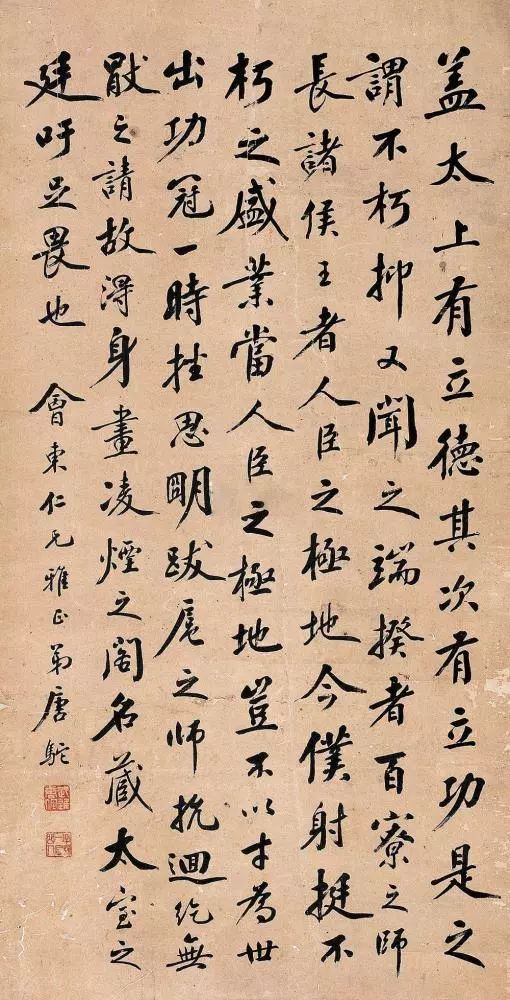 盖太上有立德其次有立功是之
謂不朽抑又聞之端揆者百寮之師
長諸侯王者人臣之極地今僕射挺不
朽之盛業當人臣之極地豈不以才為世
出功冠一時挫思明跋扈之師抗迴紇無
猒之請故得身畫凌煙之閣名藏太室之
廷吁足畏也
會東仁兄雅正 弟唐駝